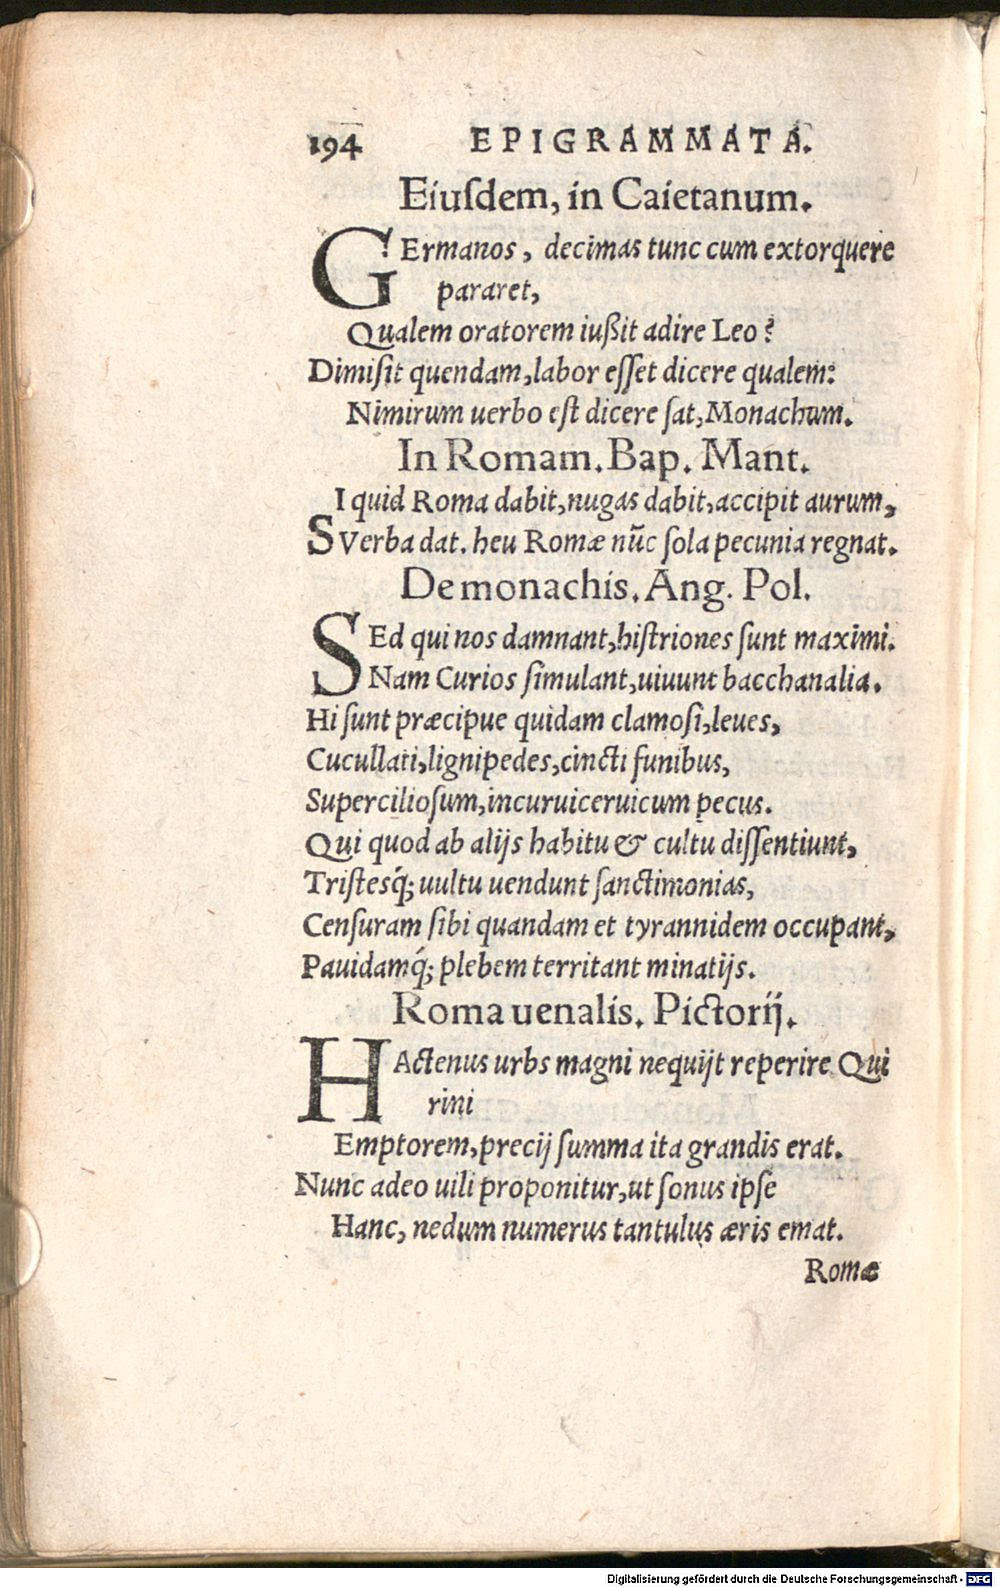 194 EPIGRAMMATA.
Eiusdem, in Caietanum.
GErmanos, decimas tunc cum extorquere
pararet,
Qualem oratorem iußit adire Leo?
Dimisit quendam, labor esset dicere qualem:
Nimirum uerbo est dicere sat, Monachum.
In Romam. Bap. Mant.
SI quid Roma dabit, nugas dabit, accipit aurum,
Verba dat. heu Romæ nūc sola pecunia regnat.
De monachis. Ang. Pol.
SEd qui nos damnant, histriones sunt maximi.
Nam Curios simulant, uiuunt bacchanalia.
Hi sunt præcipue quidam clamosi, leues,
Cucullati, lignipedes, cincti funibus,
Superciliosum, incuruiceruicum pecus.
Qui quod ab alijs habitu & cultu dissentiunt,
Tristesq́; uultu uendunt sanctimonias,
Censuram sibi quandam et tyrannidem occupant,
Pauidamq́; plebem territant minatijs.
Roma uenalis. Pictorij.
HActenus urbs magni nequijt reperire Qui
rini
Emptorem, precij summa ita grandis erat.
Nunc adeo uili proponitur, ut sonus ipse
Hanc, nedum numerus tantulus æris emat.
Romæ
Digitalisierung gefördert durch die Deutsche Forschungsgemeinschaft - DFG